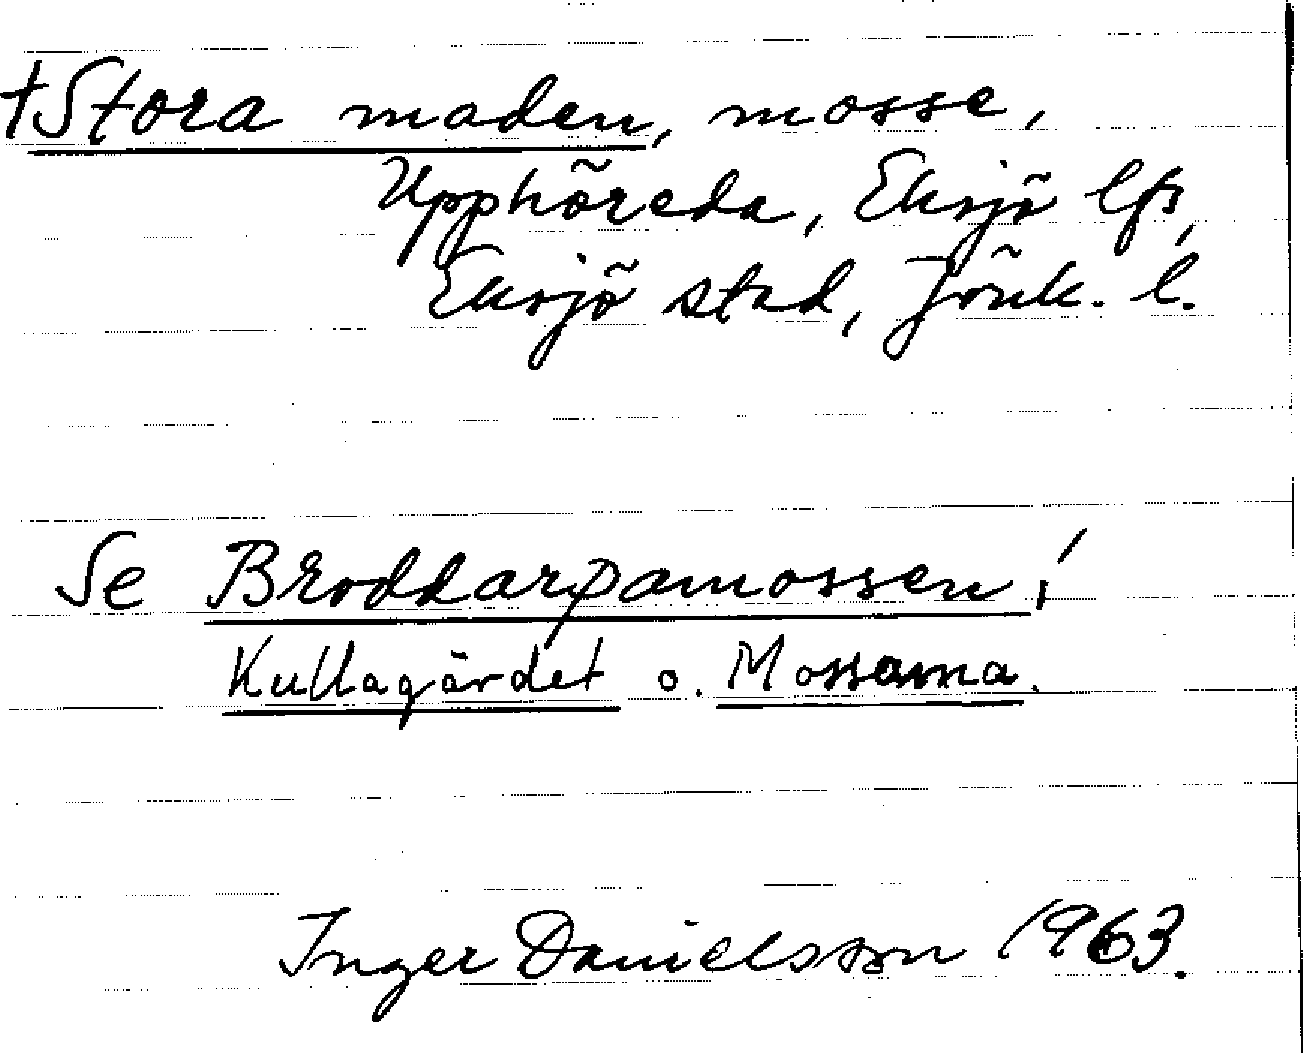 †Stora maden, mosse,
Upphöreda, Eksjö lfs,
Eksjö stad, Jönk. l.
Se Broddarpamossen,
Kullagärdet o. Mossarna.
Inger Danielsson 1963.